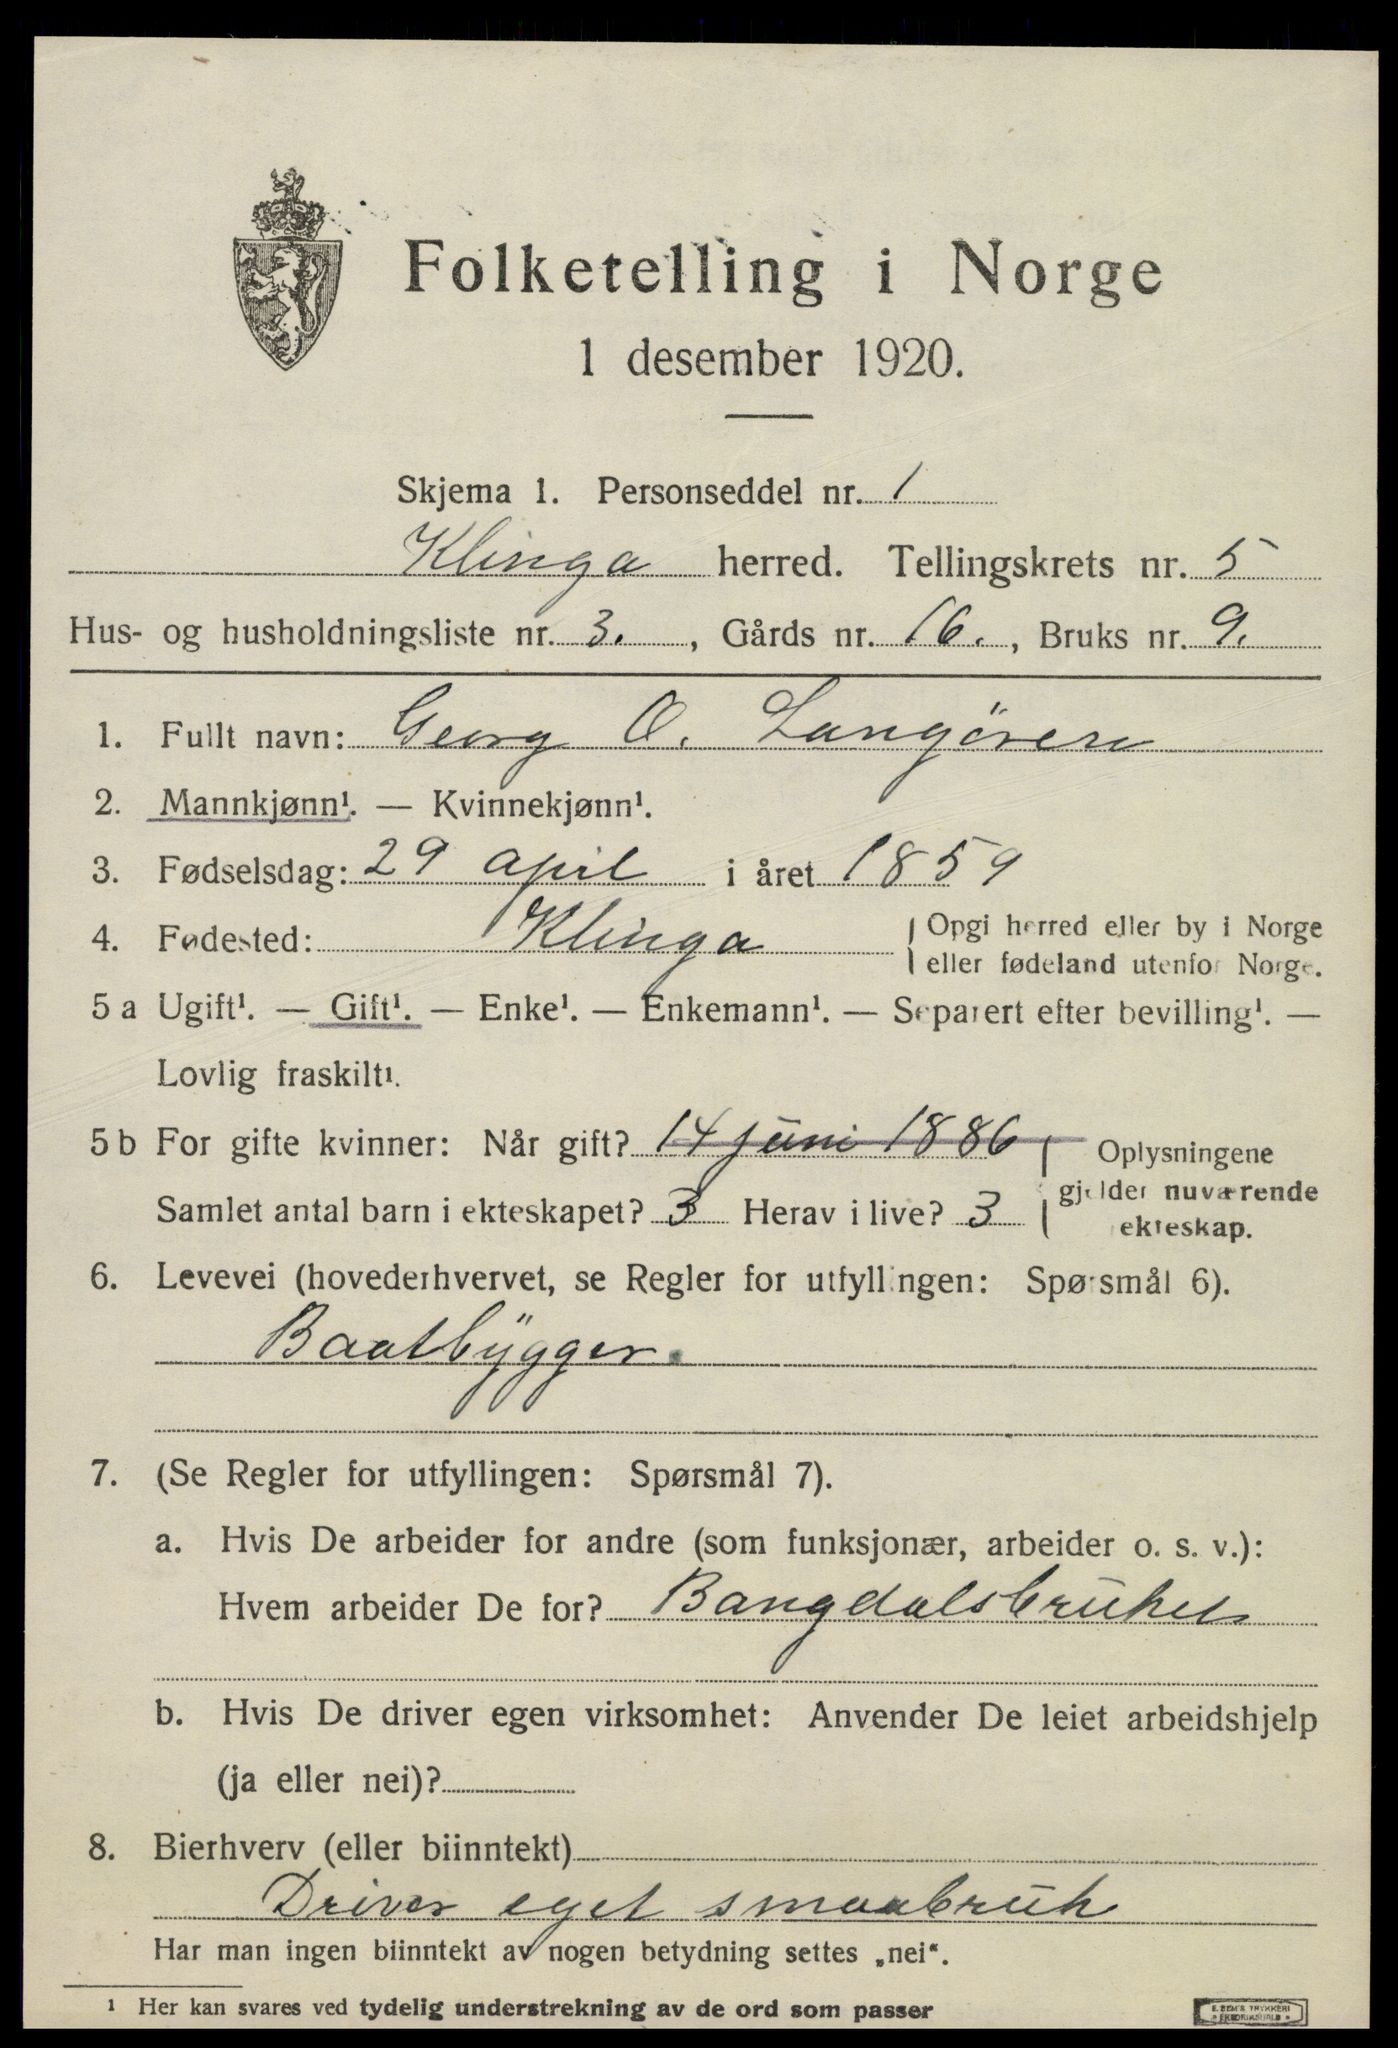 Folketelling i Norge
1 desember 1920.
Skjema 1. Personseddel nr. 1
Klinga herred. Tellingskrets nr. 5
Hus- og husholdningsliste nr. 3. , Gårds nr. 16. , Bruks nr. 9.
1. Fullt navn: Georg O. Langøren
2. Mannkjønn¹. — Kvinnekjønn¹.
3. Fødselsdag: 29 april i året 1859
4. Fødested: Klinga
Opgi herred eller by i Norge
eller fødeland utenfor Norge.
5 a Ugift¹. — Gift¹. — Enke¹. — Enkemann¹. — Separert efter bevilling¹. —
Lovlig fraskilt¹.
5 b For gifte kvinner: Når gift? 14 juni 1886
Samlet antal barn i ekteskapet? 3 Herav i live? 3
Oplysningene
gjelder nuværende
ekteskap.
6. Levevei (hovederhvervet, se Regler for utfyllingen: Spørsmål 6).
Baatbÿgger.
7. (Se Regler for utfyllingen: Spørsmål 7).
a. Hvis De arbeider for andre (som funksjonær, arbeider o. s. v.):
Hvem arbeider De for? Bangdalsbruket
b. Hvis De driver egen virksomhet: Anvender De leiet arbeidshjelp
(ja eller nei)?
8. Bierhverv (eller biinntekt)
Driver eget smaabruk
Har man ingen biinntekt av nogen betydning settes „nei“.
¹ Her kan svares ved tydelig understrekning av de ord som passer